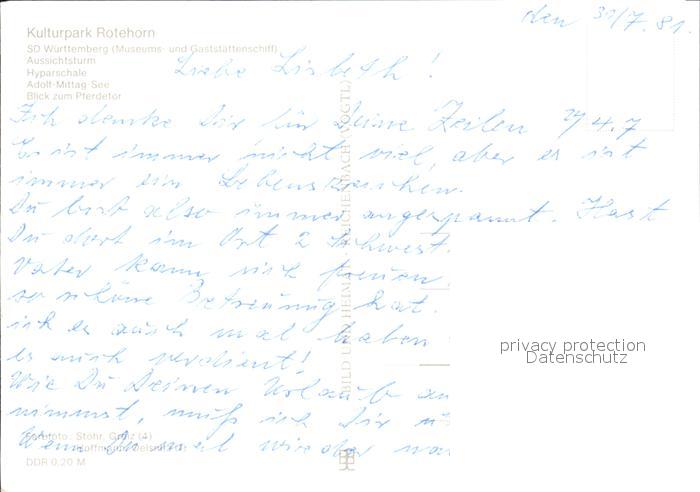 Kulturpark Rotehorn
SD Württemberg (Museums- und Gaststättenschiff)
Aussichtsturm
Hyparschale
Adolf-Mittag-See
Blick zum Pferdetor
den 30/7. 81.
Liebe Lisbeth!
Ich danke Dir für Deine Zeilen 4.7
Es ist immer nicht viel, aber es ist
immer ein Lebenszeichen.
Du bist also immer angespannt. Hast
Du dort im Ort 2 Schwest.
Vater kann sich freuen
so schöne Betreuung hat.
ich es auch mal haben
es auch verdient!
Wie Du Deinen Urlaub
nimmst, muß ich Dir
Wenn Du mal wieder
BILD UND HEIMAT REICHENBACH (VOGTL)
Farbfoto: Stohr, Greiz (4)
Hoffmann, Oelsnitz
DDR 0,20 M
privacy protection
Datenschutz